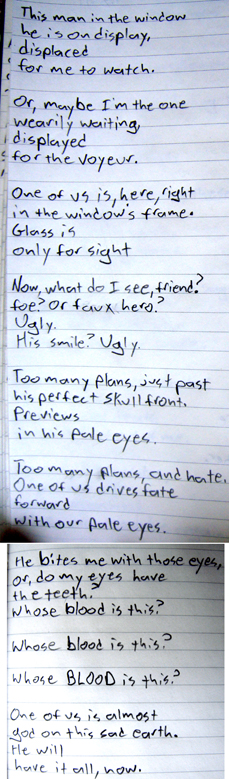 This man in the window
he is on display,
displaced
for me to watch.
Or, maybe I'm the one
wearily waiting,
displayed
for the voyeur.
One of us is, here, right
in the window's frame.
Glass is
only for sight
Now, what do I see, friend?
foe? Or faux hero?
Ugly.
His smile? Ugly.
Too many plans, just past
his perfect skull front.
Previews
in his pale eyes.
Too many plans, and hate.
One of us drives fate
forward
with our pale eyes.
He bites me with those eyes,
or, do my eyes have
the teeth?
Whose blood is this?
Whose blood is this?
Whose BLOOD is this?
One of us is almost
god on this sad earth.
He will
have it all, now.